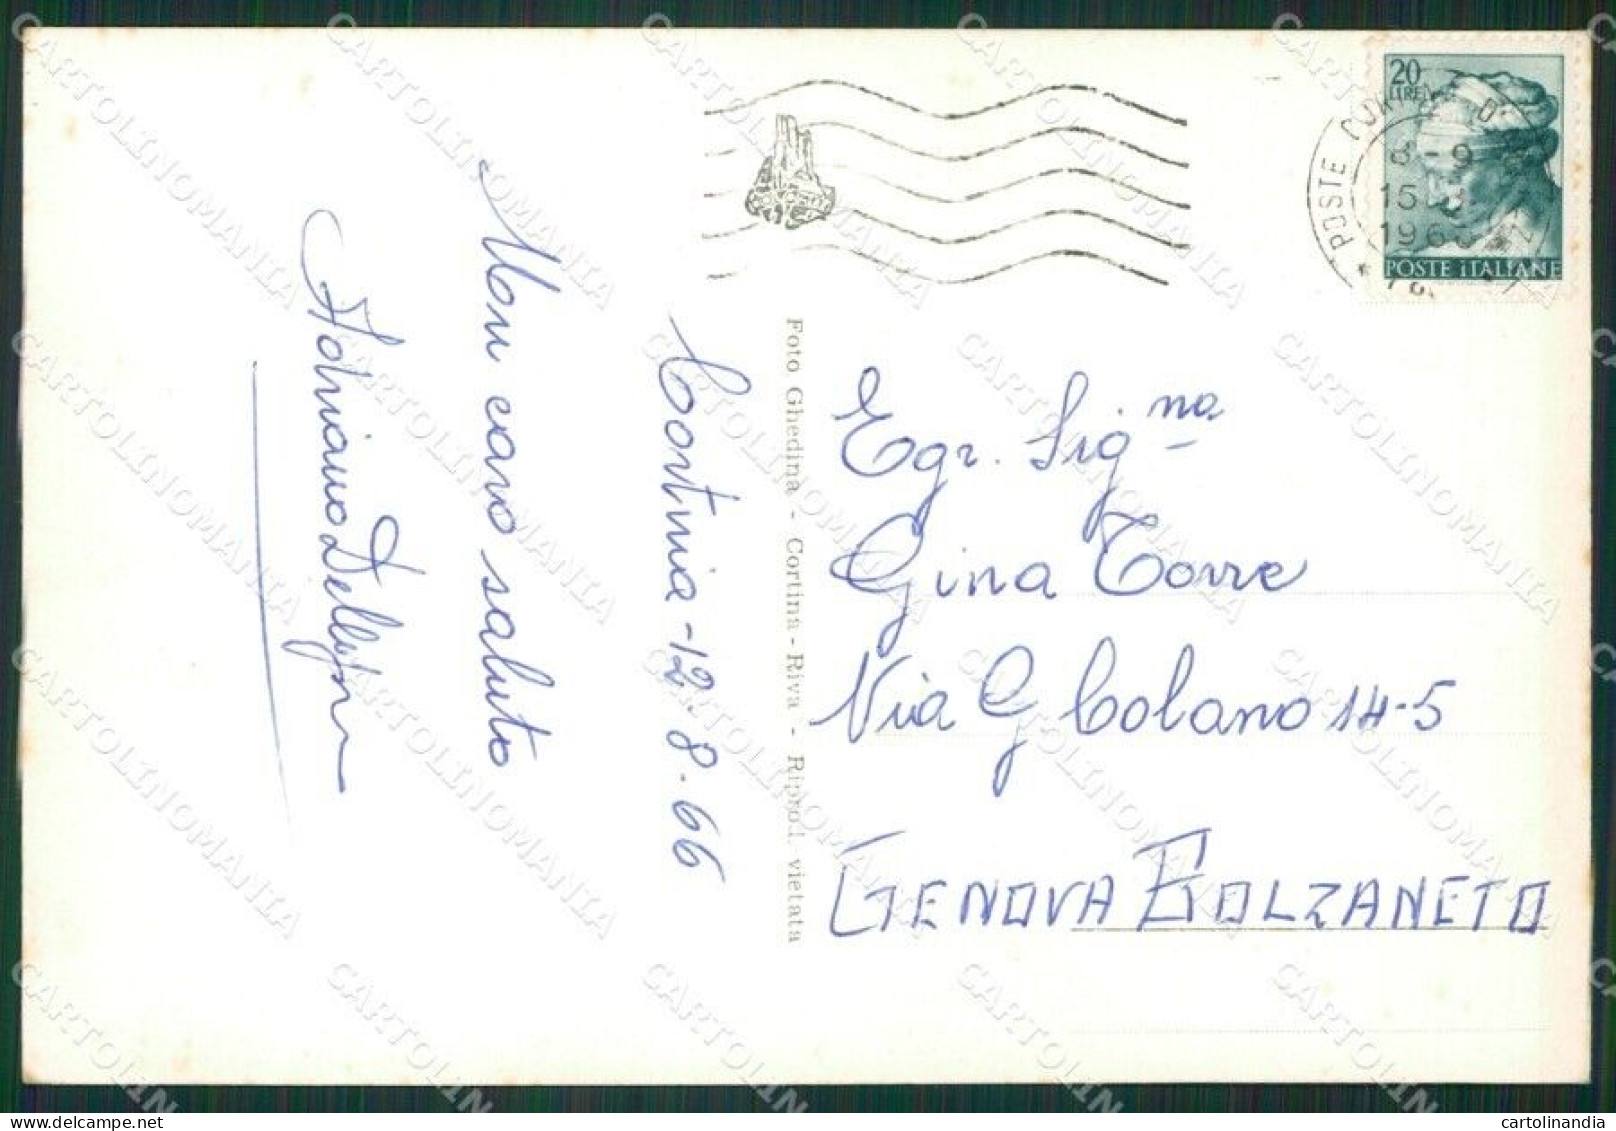 Cortina - 12.8.66
Un caro saluto
Adriano
Foto Ghedina - Cortina - Riva - Riprod. vietata
20
LIRE
POSTE ITALIANE
POSTE CORTINA D'
8-9
15
1966
Egr. Sig.na
Gina Torre
Via G Colano 14-5
GENOVA BOLZANETO
CARTOLINOMANIA
cartolinandia